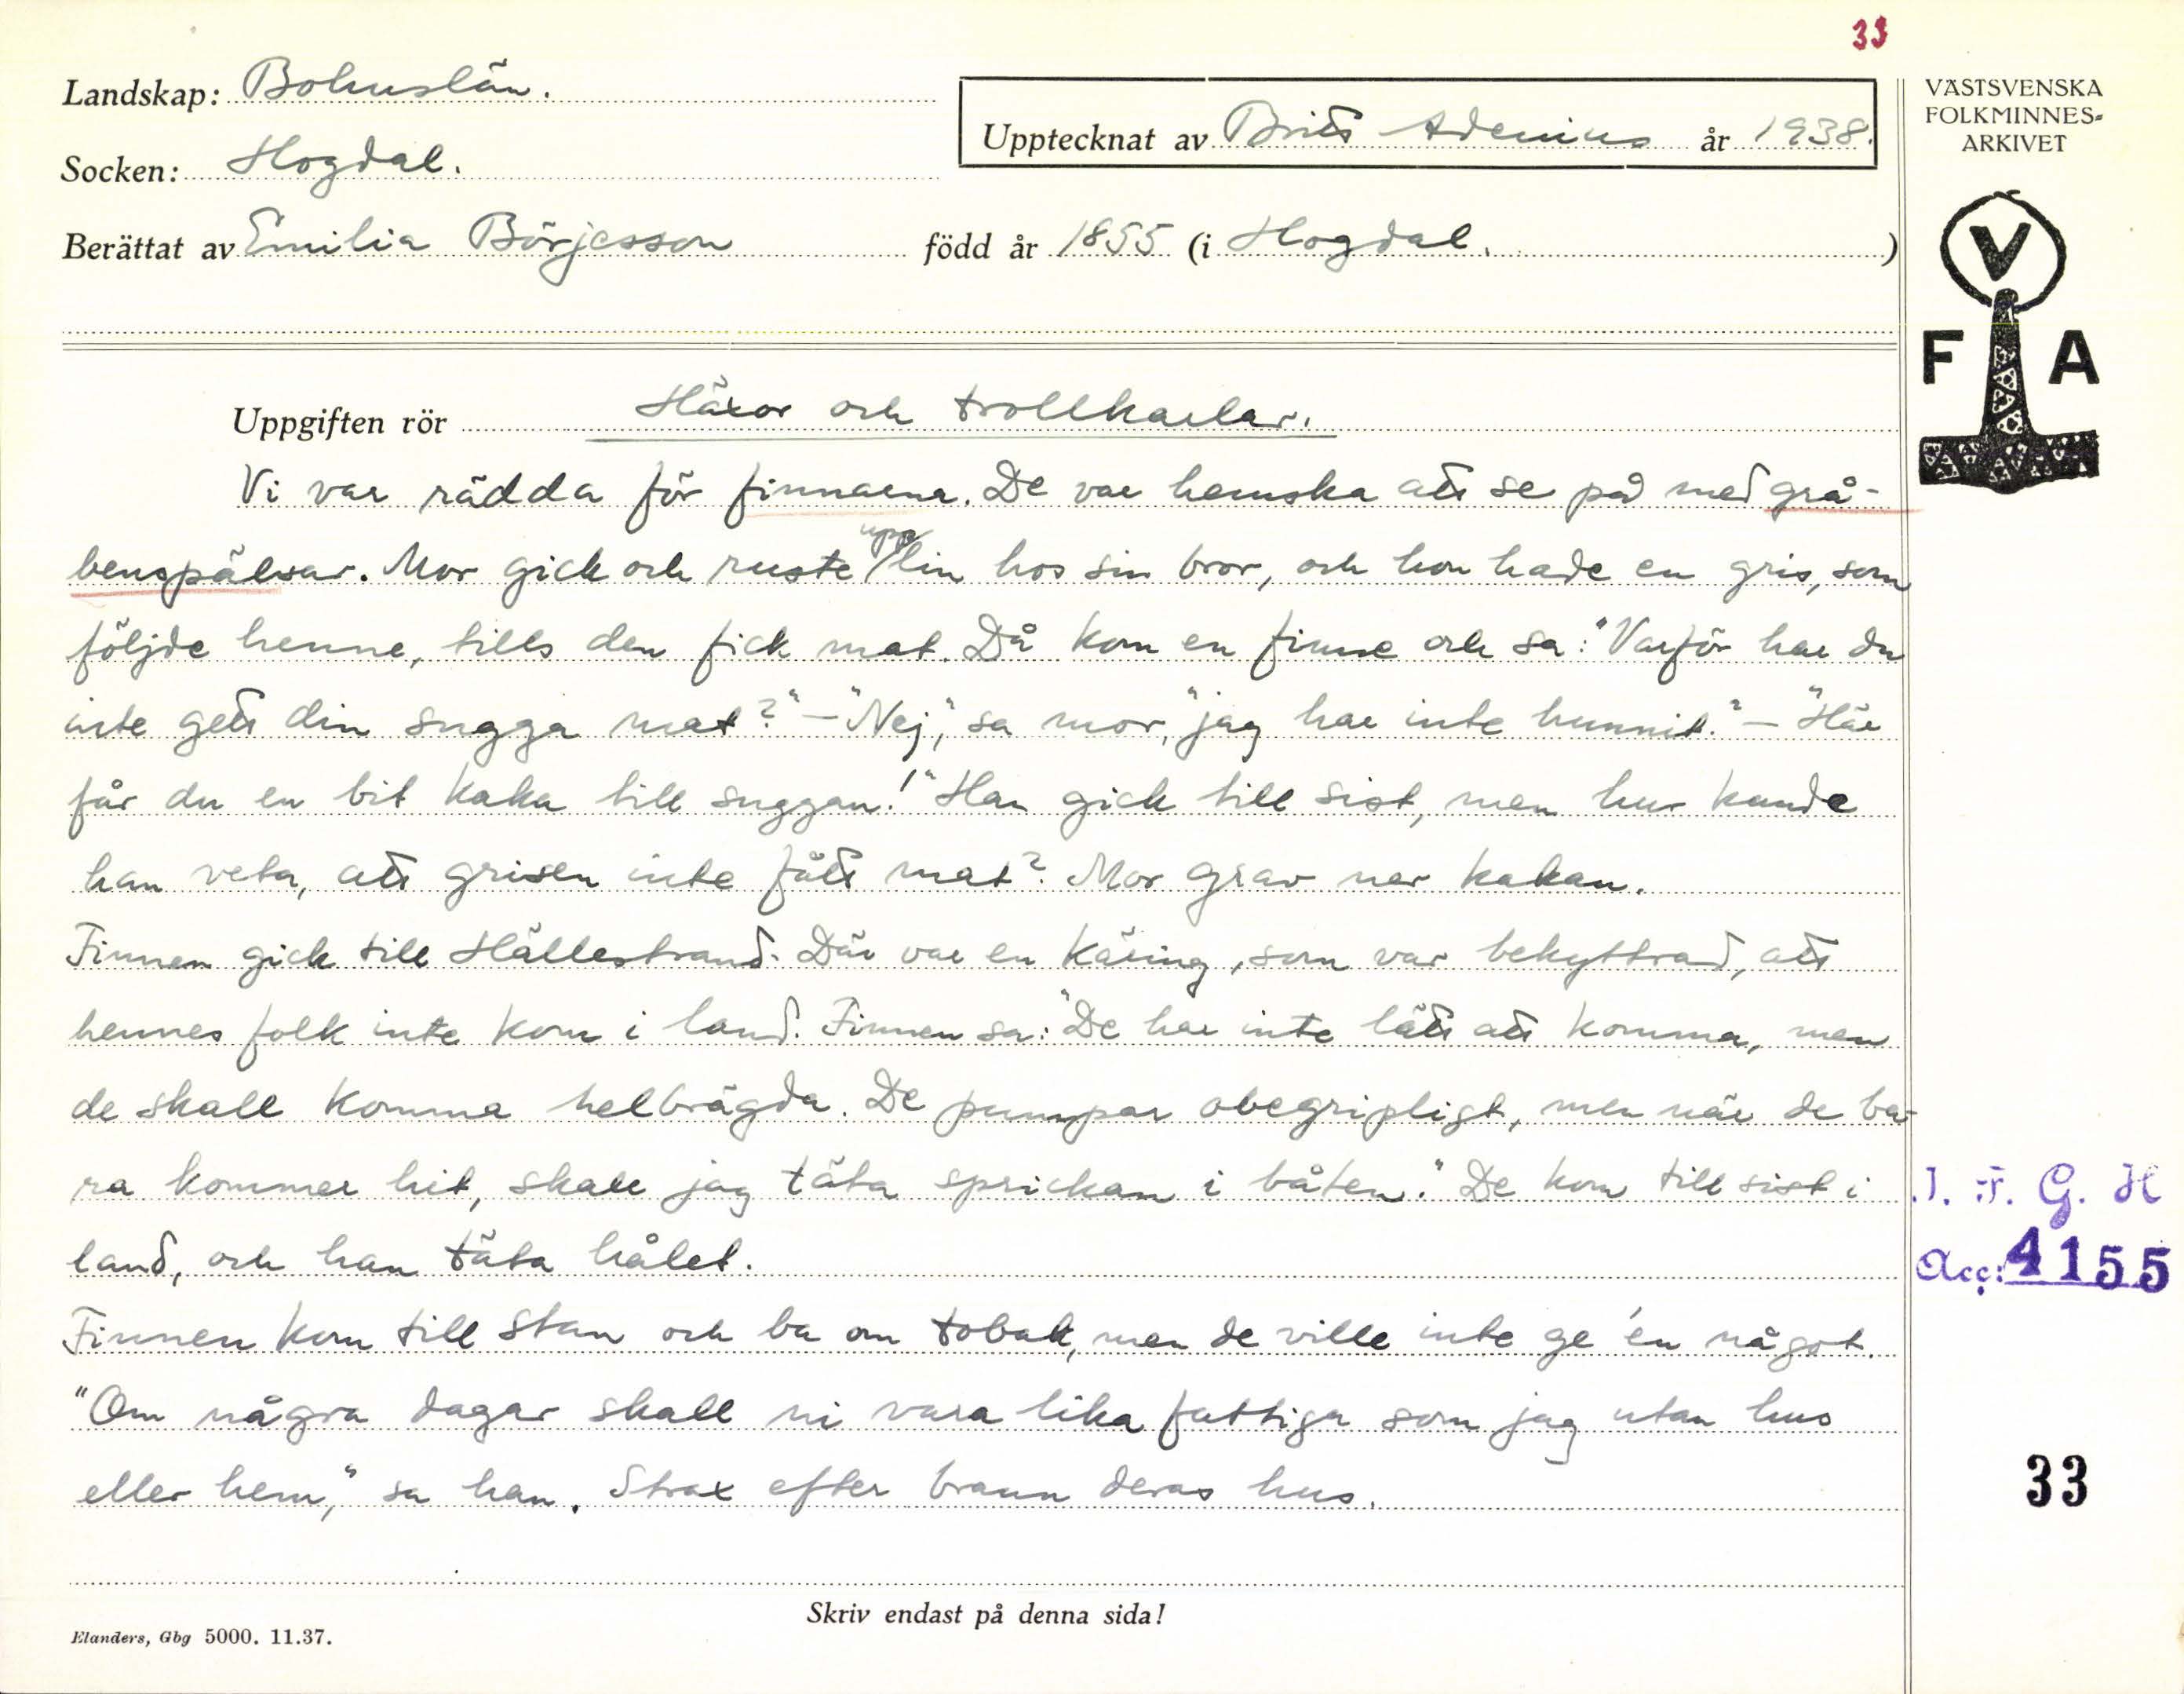 33
Landskap: Bohuslän.
Upptecknat av Britt Adenius år 1938.
VÄSTSVENSKA
FOLKMINNES-
ARKIVET
Socken: Hogdal.
Berättat av Emilia Börjesson född år 1855 (i Hogdal. )
V
F A
Uppgiften rör Häxor och trollkarlar.
Vi var rädda för finnarna. De var hemska att se på med grå-
benspälsar. Mor gick och ruste upp lin hos sin bror, och hon hade en gris, som
följde henne, tills den fick mat. Då kom en finne och sa: "Varför har du
inte gett din sugga mat?" – "Nej," sa mor, "jag har inte hunnit." – "Här
får du en bit kaka till suggan!" Han gick till sist, men hur kunde
han veta, att grisen inte fått mat? Mor grav ner kakan.
Finnen gick till Hällestrand. Där var en käring, som var bekyttrad, att
hennes folk inte kom i land. Finnen sa: "De har inte lätt att komma, men
de skall komma helbrägda. De pumpar obegripligt, men när de ba-
ra kommer hit, skall jag täta sprickan i båten." De kom till sist i
land, och han täta hålet.
Finnen kom till stan och ba om tobak, men de ville inte ge 'en något.
"Om några dagar skall ni vara lika fattiga som jag utan hus
eller hem," sa han. Strax efter brann deras hus.
I. F. G. H
Acc: 4155
33
Skriv endast på denna sida!
Elanders, Gbg 5000. 11.37.